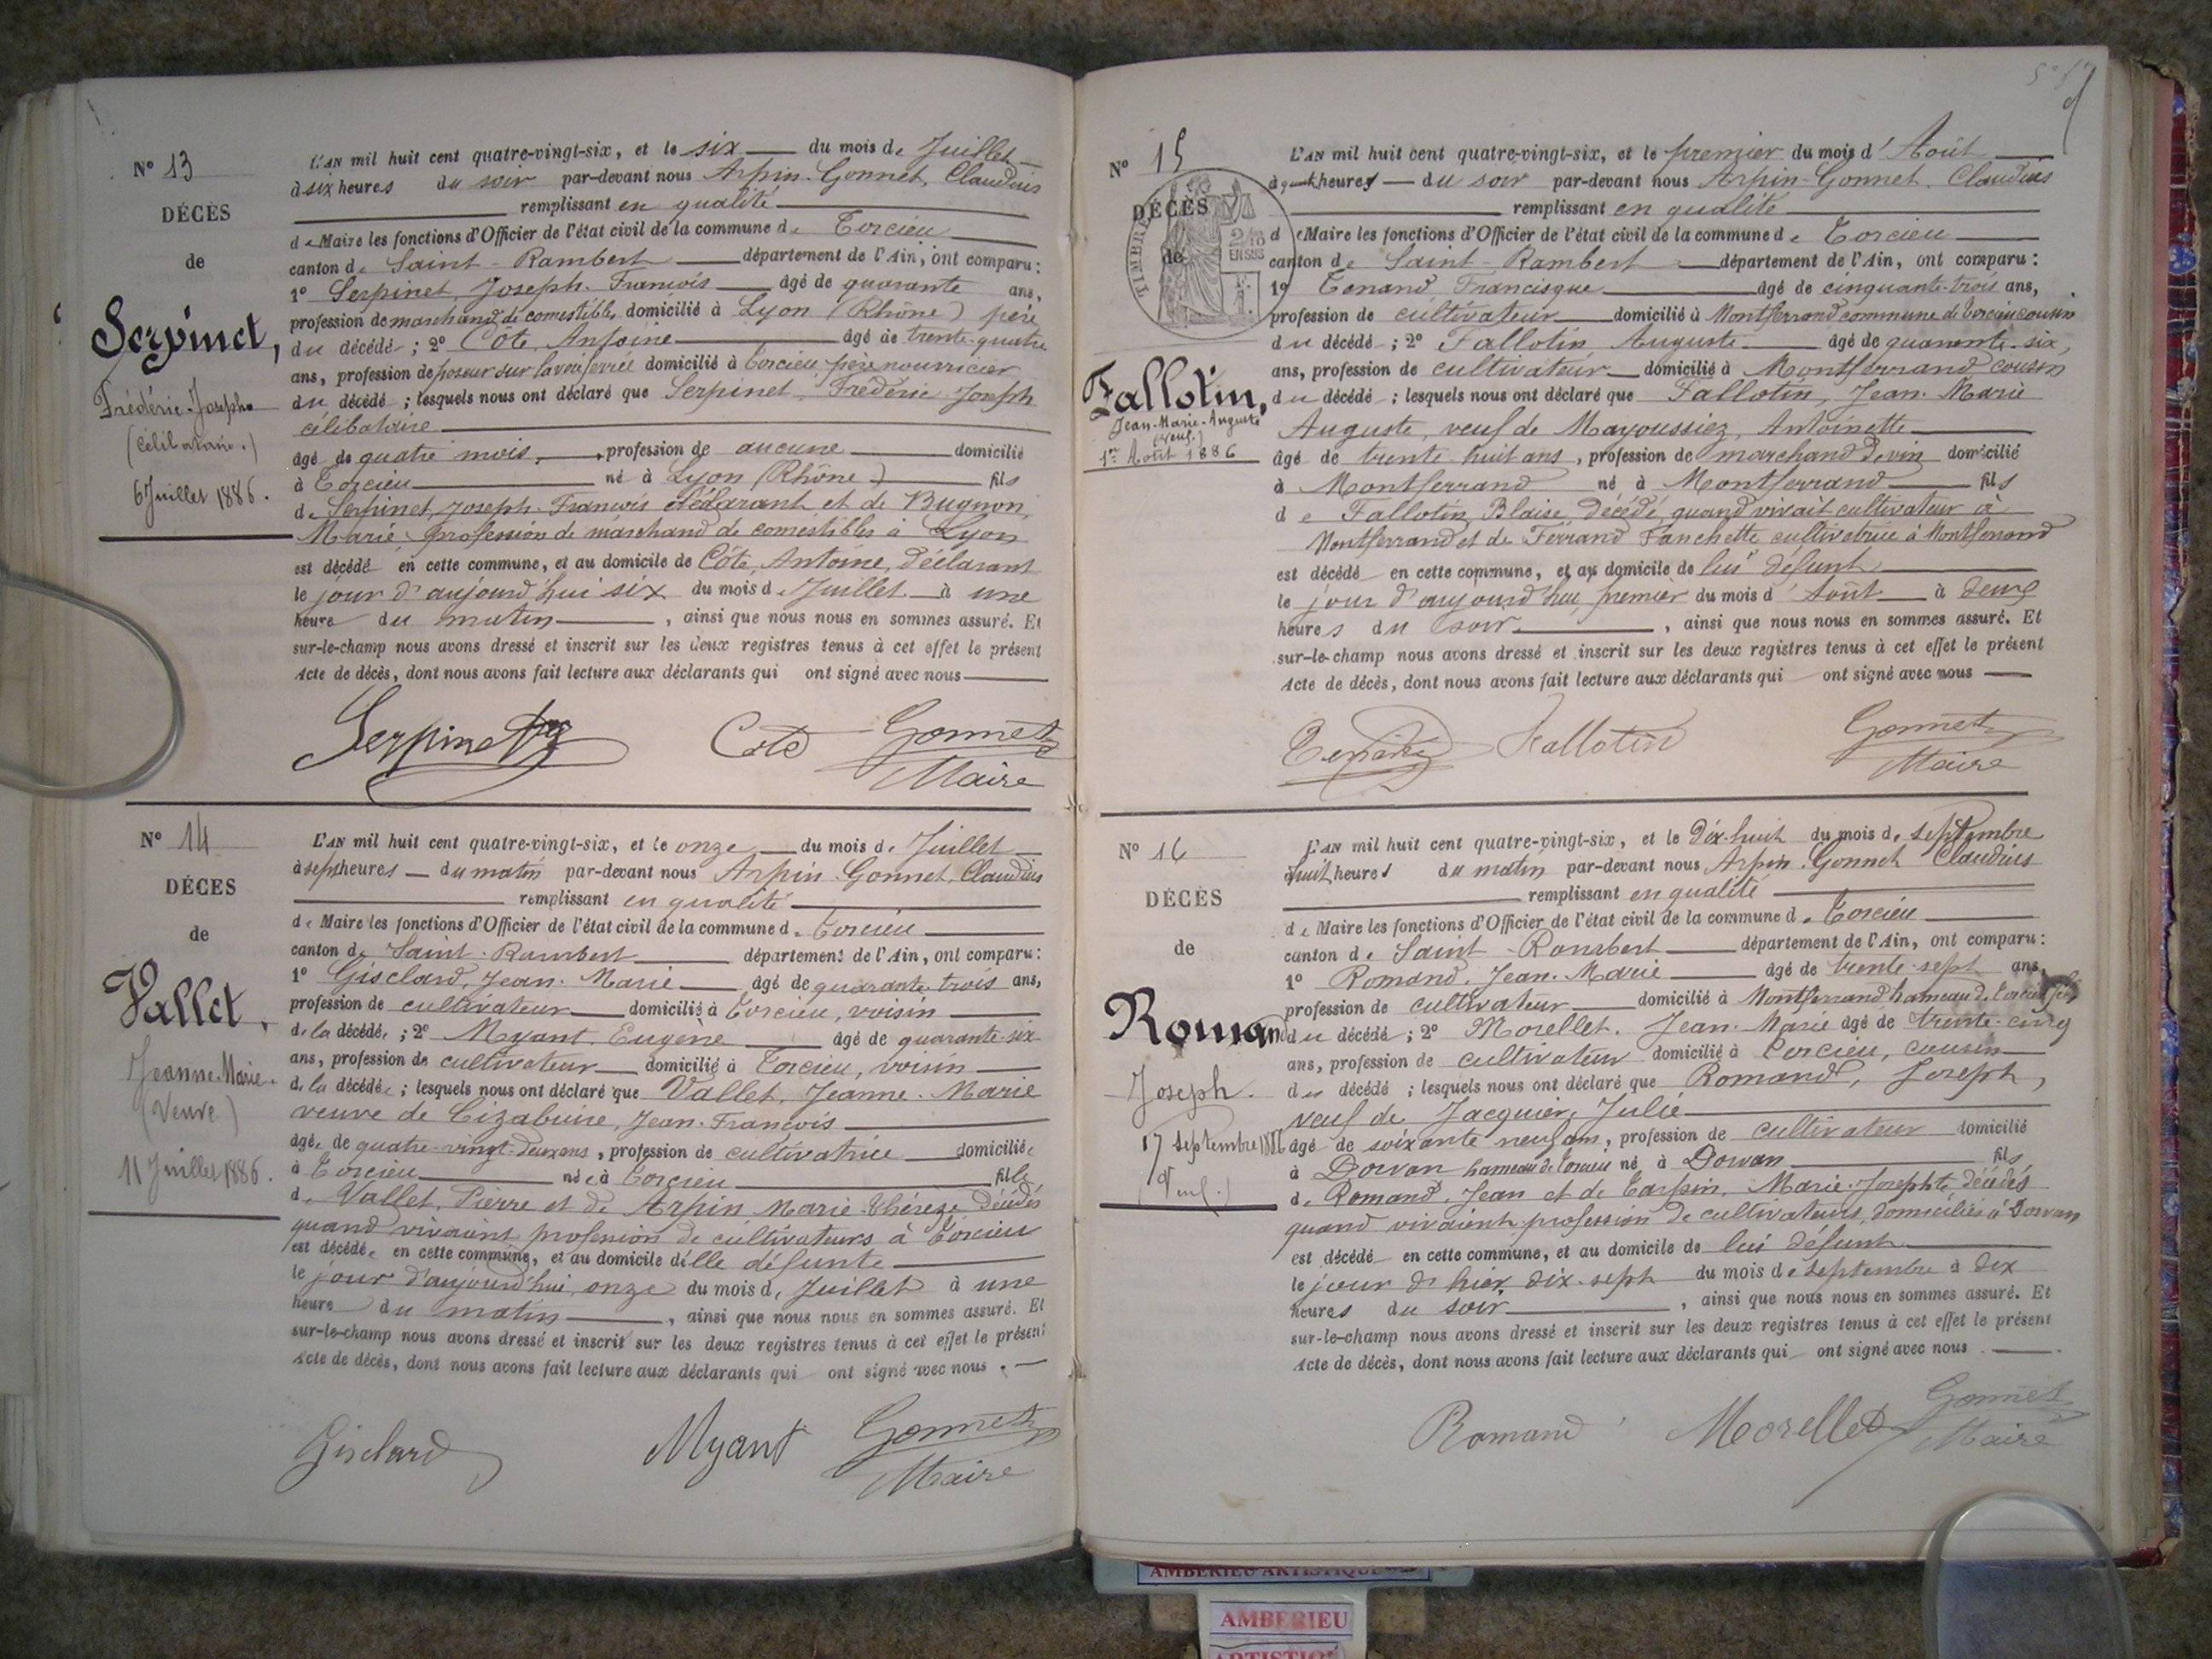 N° 13
DÉCÈS
de
Serpinet,
Frédéric-Joseph
(célibataire.)
6 Juillet 1886.
L'AN mil huit cent quatre-vingt-six, et le six du mois de Juillet
à six heures du soir par-devant nous Arpin-Gonnet, Claudius
remplissant en qualité
de Maire les fonctions d'Officier de l'état civil de la commune de Torcieu
canton de Saint-Rambert département de l'Ain, ont comparu :
1° Serpinet, Joseph-François âgé de quarante ans,
profession de marchand de comestibles domicilié à Lyon (Rhône) père
du décédé ; 2° Côte, Antoine âgé de trente-quatre
ans, profession de poseur sur la voie ferrée domicilié à Torcieu, père nourricier
du décédé ; lesquels nous ont déclaré que Serpinet, Frédéric Joseph
célibataire
âgé de quatre mois, profession de aucune domicilié
à Torcieu né à Lyon (Rhône) fils
de Serpinet, Joseph-François déclarant et de Bugnon,
Marie profession de marchand de comestibles à Lyon
est décédé en cette commune, et au domicile de Côte, Antoine, déclarant
le jour d'aujourd'hui six du mois de Juillet à une
heure du matin , ainsi que nous nous en sommes assuré. Et
sur-le-champ nous avons dressé et inscrit sur les deux registres tenus à cet effet le présent
Acte de décès, dont nous avons fait lecture aux déclarants qui ont signé avec nous
Serpinet Cote Gonnet
Maire
N° 14
DÉCÈS
de
Vallet,
Jeanne-Marie.
(Veuve)
11 Juillet 1886.
L'AN mil huit cent quatre-vingt-six, et le onze du mois de Juillet
à sept heures du matin par-devant nous Arpin-Gonnet, Claudius
remplissant en qualité
de Maire les fonctions d'Officier de l'état civil de la commune de Torcieu
canton de Saint-Rambert département de l'Ain, ont comparu :
1° Gisclard, Jean-Marie âgé de quarante-trois ans,
profession de cultivateur domicilié à Torcieu, voisin
de la décédée ; 2° Myant, Eugène âgé de quarante-six
ans, profession de cultivateur domicilié à Torcieu, voisin
de la décédée ; lesquels nous ont déclaré que Vallet, Jeanne-Marie
veuve de Cizabuire, Jean-François
âgée de quatre-vingt-deux ans , profession de cultivatrice domiciliée
à Torcieu née à Torcieu fille
de Vallet, Pierre et de Arpin Marie-Thérèze décédés
quand vivaient profession de cultivateurs à Torcieu
est décédée en cette commune, et au domicile d'elle défunte
le jour d'aujourd'hui onze du mois de Juillet à une
heure du matin , ainsi que nous nous en sommes assuré. Et
sur-le-champ nous avons dressé et inscrit sur les deux registres tenus à cet effet le présent
Acte de décès, dont nous avons fait lecture aux déclarants qui ont signé avec nous .
Gisclard Myant Gonnet
Maire
N° 15
DÉCÈS
de
TIMBRE
2/10
EN SUS
Fallotin,
Jean-Marie-Auguste
(veuf.)
1er Août 1886
L'AN mil huit cent quatre-vingt-six, et le premier du mois d'Août
à quatre heures du soir par-devant nous Arpin-Gonnet, Claudius
remplissant en qualité
de Maire les fonctions d'Officier de l'état civil de la commune de Torcieu
canton de Saint-Rambert département de l'Ain, ont comparu :
1° Tenand, Francisque âgé de cinquante-trois ans,
profession de cultivateur domicilié à Montferrand commune de Torcieu cousin
du décédé ; 2° Fallotin Auguste âgé de quarante-six,
ans, profession de cultivateur domicilié à Montferrand cousin
du décédé ; lesquels nous ont déclaré que Fallotin, Jean-Marie
Auguste, veuf de Mayoussiez, Antoinette
âgé de trente-huit ans , profession de marchand de vin domicilié
à Montferrand né à Montferrand fils
de Fallotin Blaise, décédé, quand vivait cultivateur à
Montferrand et de Ferrand Fanchette cultivatrice à Montferrand
est décédé en cette commune, et au domicile de lui défunt
le jour d'aujourd'hui premier du mois d'Août à deux
heures du soir , ainsi que nous nous en sommes assuré. Et
sur-le-champ nous avons dressé et inscrit sur les deux registres tenus à cet effet le présent
Acte de décès, dont nous avons fait lecture aux déclarants qui ont signé avec nous
Fallotin Gonnet
Maire
N° 16
DÉCÈS
de
Romand
Joseph.
17 Septembre 1886
(Veuf.)
L'AN mil huit cent quatre-vingt-six, et le dix-huit du mois de septembre
à huit heures du matin par-devant nous Arpin-Gonnet Claudius
remplissant en qualité
de Maire les fonctions d'Officier de l'état civil de la commune de Torcieu
canton de Saint-Rambert département de l'Ain, ont comparu :
1° Romand, Jean-Marie âgé de trente-sept ans,
profession de cultivateur domicilié à Montferrand hameau de Torcieu fils
du décédé ; 2° Morellet, Jean-Marie âgé de trente-cinq
ans, profession de cultivateur domicilié à Torcieu, cousin
du décédé ; lesquels nous ont déclaré que Romand, Joseph,
veuf de Jacquier, Julie
âgé de soixante neuf ans, profession de cultivateur domicilié
à Dorvan hameau de Torcieu né à Dorvan fils
de Romand, Jean et de Tarpin, Marie-Josephte décédés
quand vivaient profession de cultivateurs, domiciliés à Dorvan
est décédé en cette commune, et au domicile de lui défunt
le jour d'hier dix-sept du mois de septembre à dix
heures du soir , ainsi que nous nous en sommes assuré. Et
sur-le-champ nous avons dressé et inscrit sur les deux registres tenus à cet effet le présent
Acte de décès, dont nous avons fait lecture aux déclarants qui ont signé avec nous .
Romand Morellet Gonnet
Maire
AMBERIEU ARTISTIQUE
AMBERIEU
ARTISTIQUE